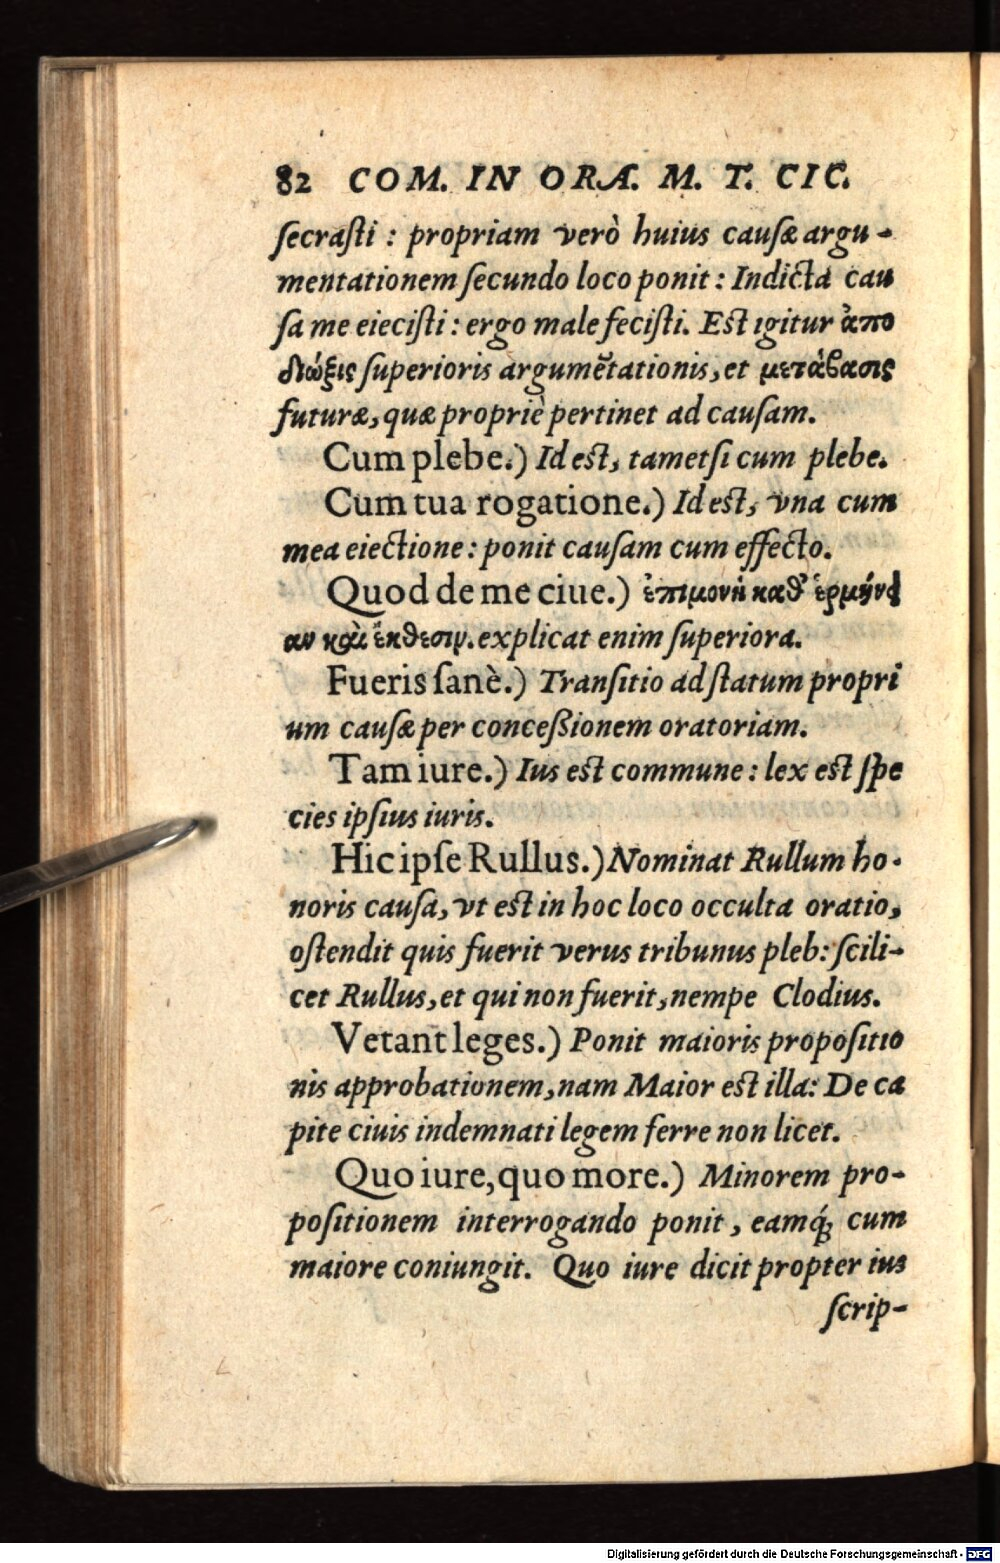 82 COM. IN ORA. M. T. CIC.
ſecraſti : propriam verò huius cauſæ argu-
mentationem ſecundo loco ponit : Indicta cau
ſa me eieciſti : ergo male feciſti. Est igitur ἀπο
δίωξις ſuperioris argumẽtationis, et μετάβασις
futuræ, quæ propriè pertinet ad cauſam.
Cum plebe.) Id est, tametſi cum plebe.
Cum tua rogatione.) Id est, vna cum
mea eiectione : ponit cauſam cum effecto.
Quod de me ciue.) ἐπιμονὴ καθ' ἑρμηνεί
αν καὶ ἔκθεσιν. explicat enim ſuperiora.
Fueris ſanè.) Tranſitio ad ſtatum propri
um cauſæ per conceßionem oratoriam.
Tam iure.) Ius est commune : lex est ſpe
cies ipſius iuris.
Hic ipſe Rullus.) Nominat Rullum ho-
noris cauſa, vt est in hoc loco occulta oratio,
oſtendit quis fuerit verus tribunus pleb: ſcili-
cet Rullus, et qui non fuerit, nempe Clodius.
Vetant leges.) Ponit maioris propoſitio
nis approbationem, nam Maior est illa: De ca
pite ciuis indemnati legem ferre non licet.
Quo iure, quo more.) Minorem pro-
poſitionem interrogando ponit, eamq́; cum
maiore coniungit. Quo iure dicit propter ius
ſcrip-
Digitalisierung gefördert durch die Deutsche Forschungsgemeinschaft - DFG